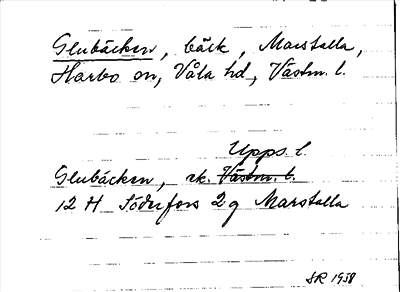 Glubäcken, bäck, Marstalla,
Harbo sn, Våla hd, Västm. l.
Upps. l.
Glubäcken, rk. Västm. l.
12 H Söderfors 2 g Marstalla
SR 1938